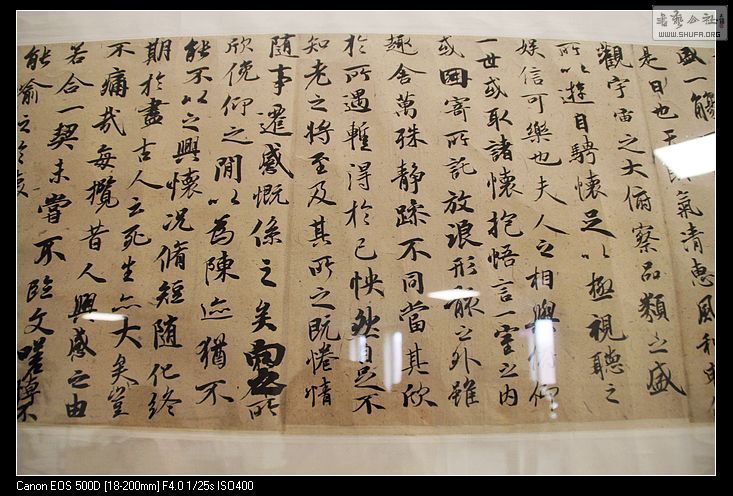 盛一觴
是日也天朗氣清惠風和
觀宇宙之大俯察品類之盛
所以遊目騁懷足以極視聽之
娛信可樂也夫人之相與俯仰
一世或取諸懷抱悟言一室之內
或因寄所託放浪形骸之外雖
趣舍萬殊靜躁不同當其欣
於所遇暫得於己怏然自足不
知老之將至及其所之既惓情
隨事遷感慨係之矣向之所
欣俛仰之間以為陳迹猶不
能不以之興懷況脩短隨化終
期於盡古人云死生亦大矣豈
不痛哉每攬昔人興感之由
若合一契未嘗不臨文嗟悼不
能喻之於
書藝公社
WWW.SHUFA.ORG
Canon EOS 500D [18-200mm] F4.0 1/25s ISO400